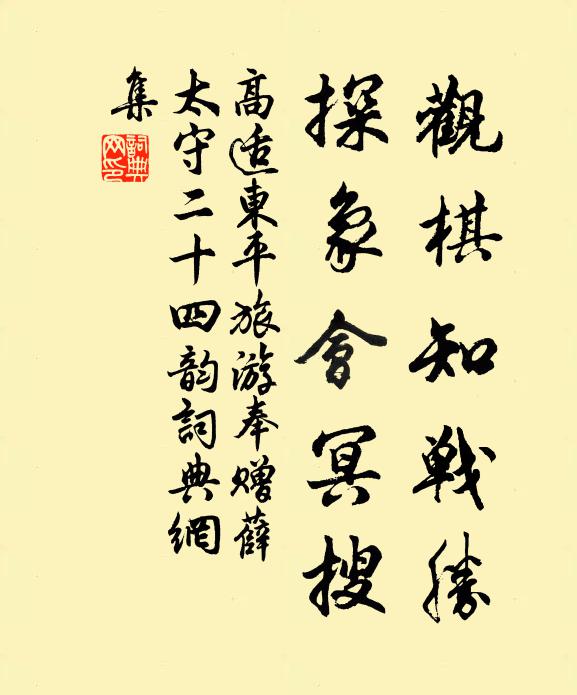 觀棋知戰勝
探象會冥搜
高适東平旅游奉贈薛
太守二十四韵詞典網
集
詞典網印